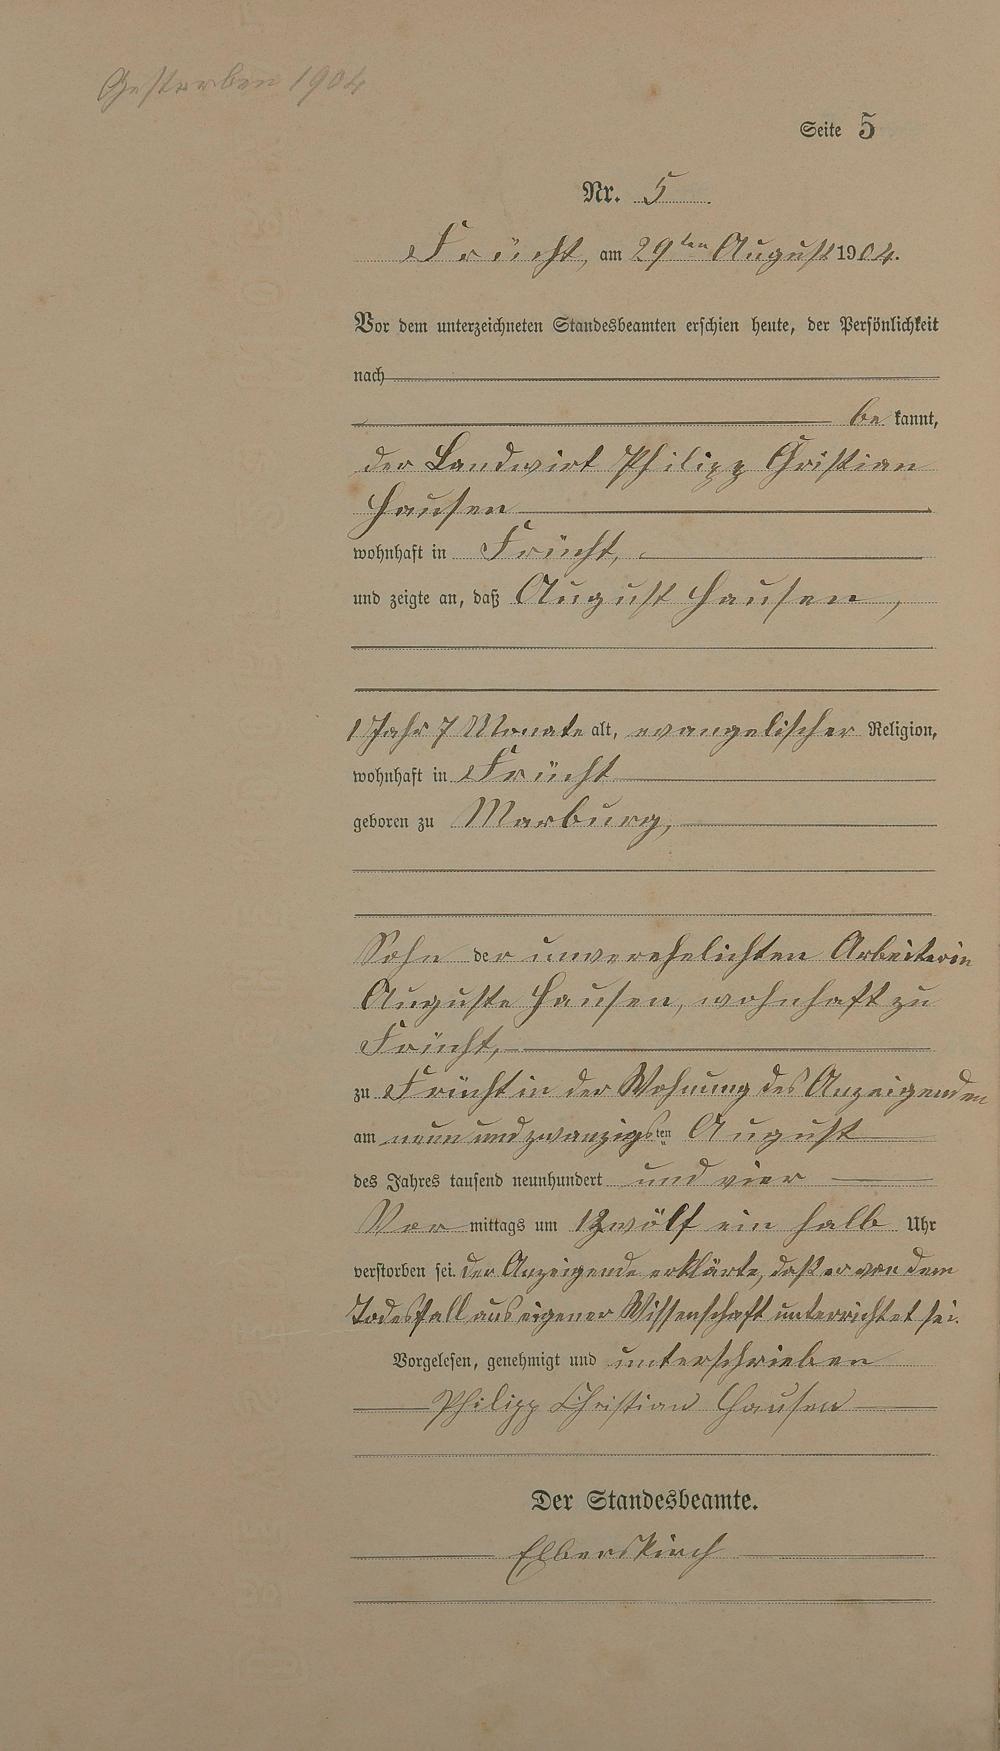 Gestorben 1904
Seite 5
Nr. 5
Frücht, am 29ten August 1904.
Vor dem unterzeichneten Standesbeamten erschien heute, der Persönlichkeit
nach
be kannt,
der Landwirt Philipp Christian
Hausen
wohnhaft in Frücht,
und zeigte an, daß August Hausen,
1 Jahr 7 Monate alt, evangelischer Religion,
wohnhaft in Frücht
geboren zu Marburg,
Sohn der unverehelichten Arbeiterin
Auguste Hausen, wohnhaft zu
Frücht,
zu Frücht in der Wohnung des Anzeigenden
am neunundzwanzigsten August
des Jahres tausend neunhundert und vier
Vor mittags um zwölf ein halb Uhr
verstorben sei. Der Anzeigende erklärte, daß er von dem
Todesfall aus eigener Wissenschaft unterrichtet sei.
Vorgelesen, genehmigt und unterschrieben
Philipp Christian Hausen
Der Standesbeamte.
Elberskirch